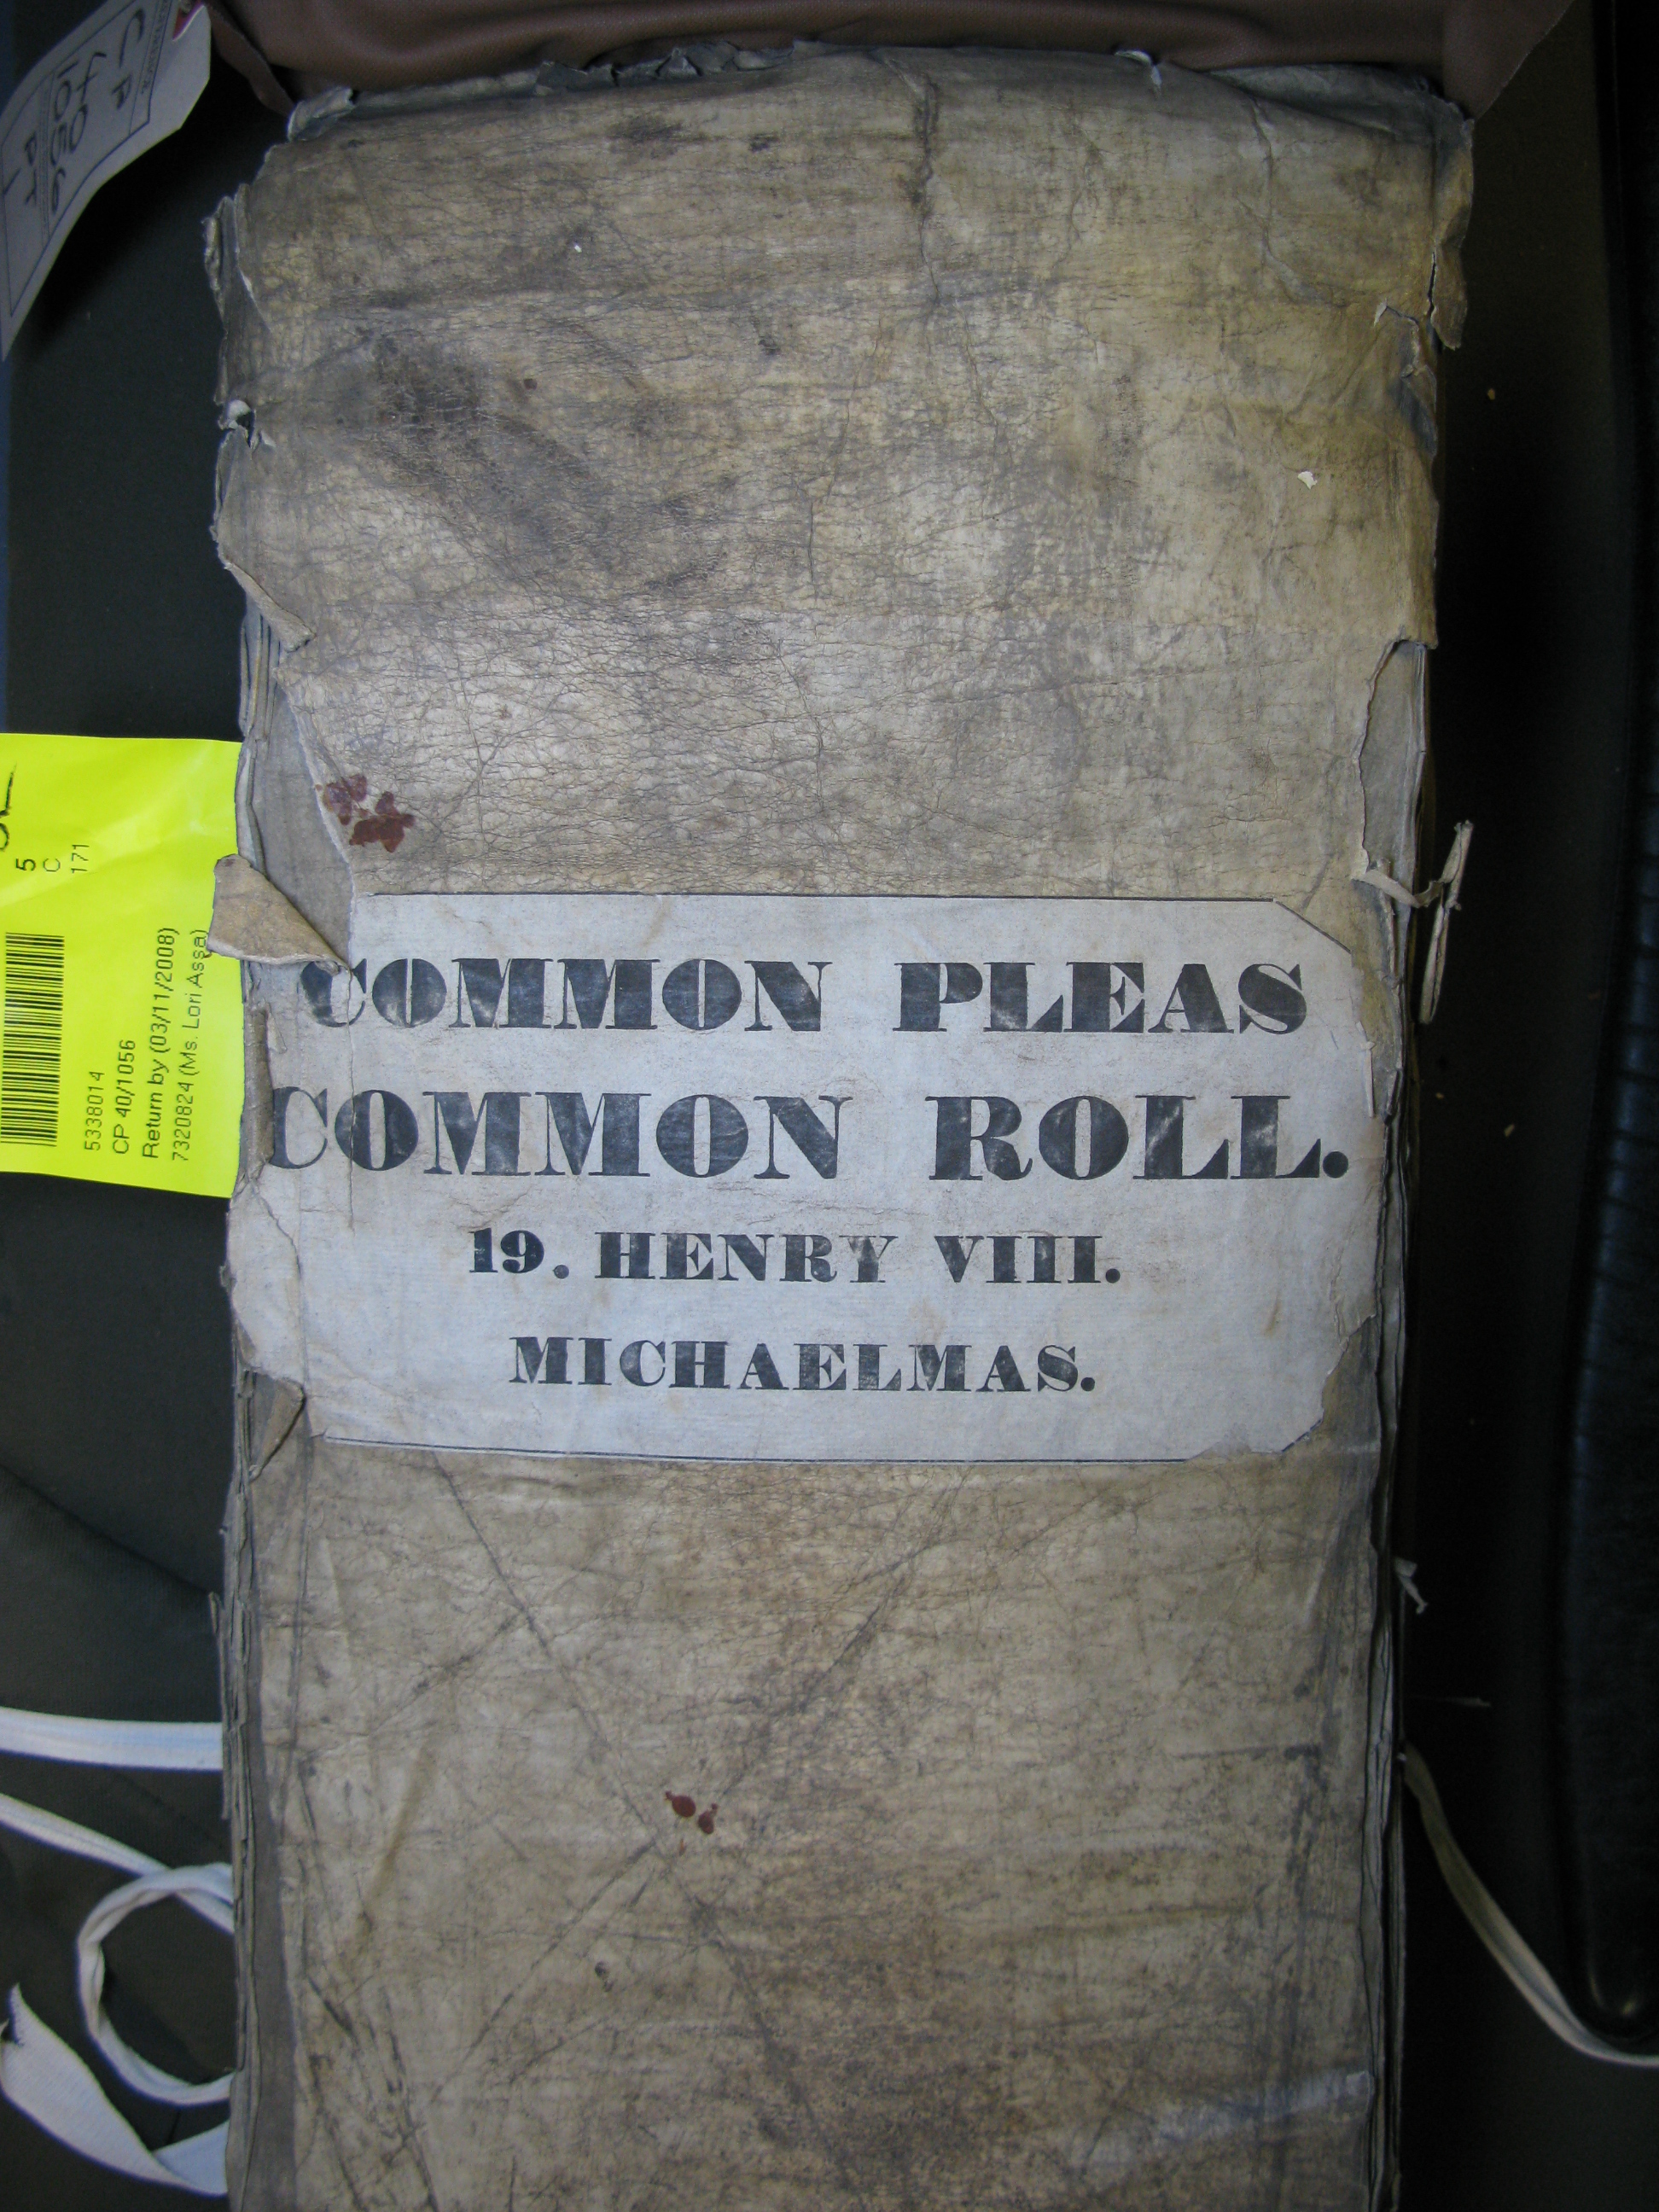 COMMON PLEAS
COMMON ROLL.
19. HENRY VIII.
MICHAELMAS.
CP 40
1056
PT 1
5
C
171
5338014
CP 40/1056
Return by (03/11/2008)
7320824 (Ms. Lori Assa)